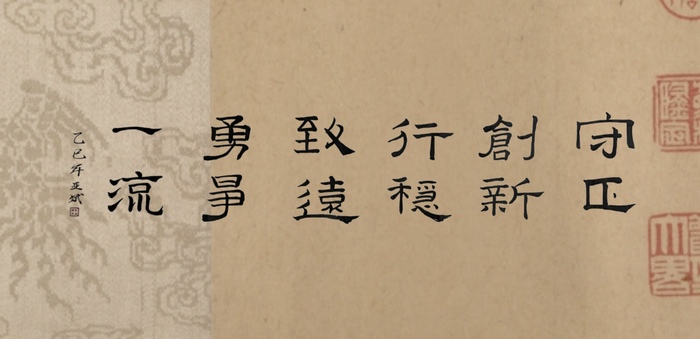 守正
創新
行穩
致遠
勇爭
一流
乙巳年亚斌